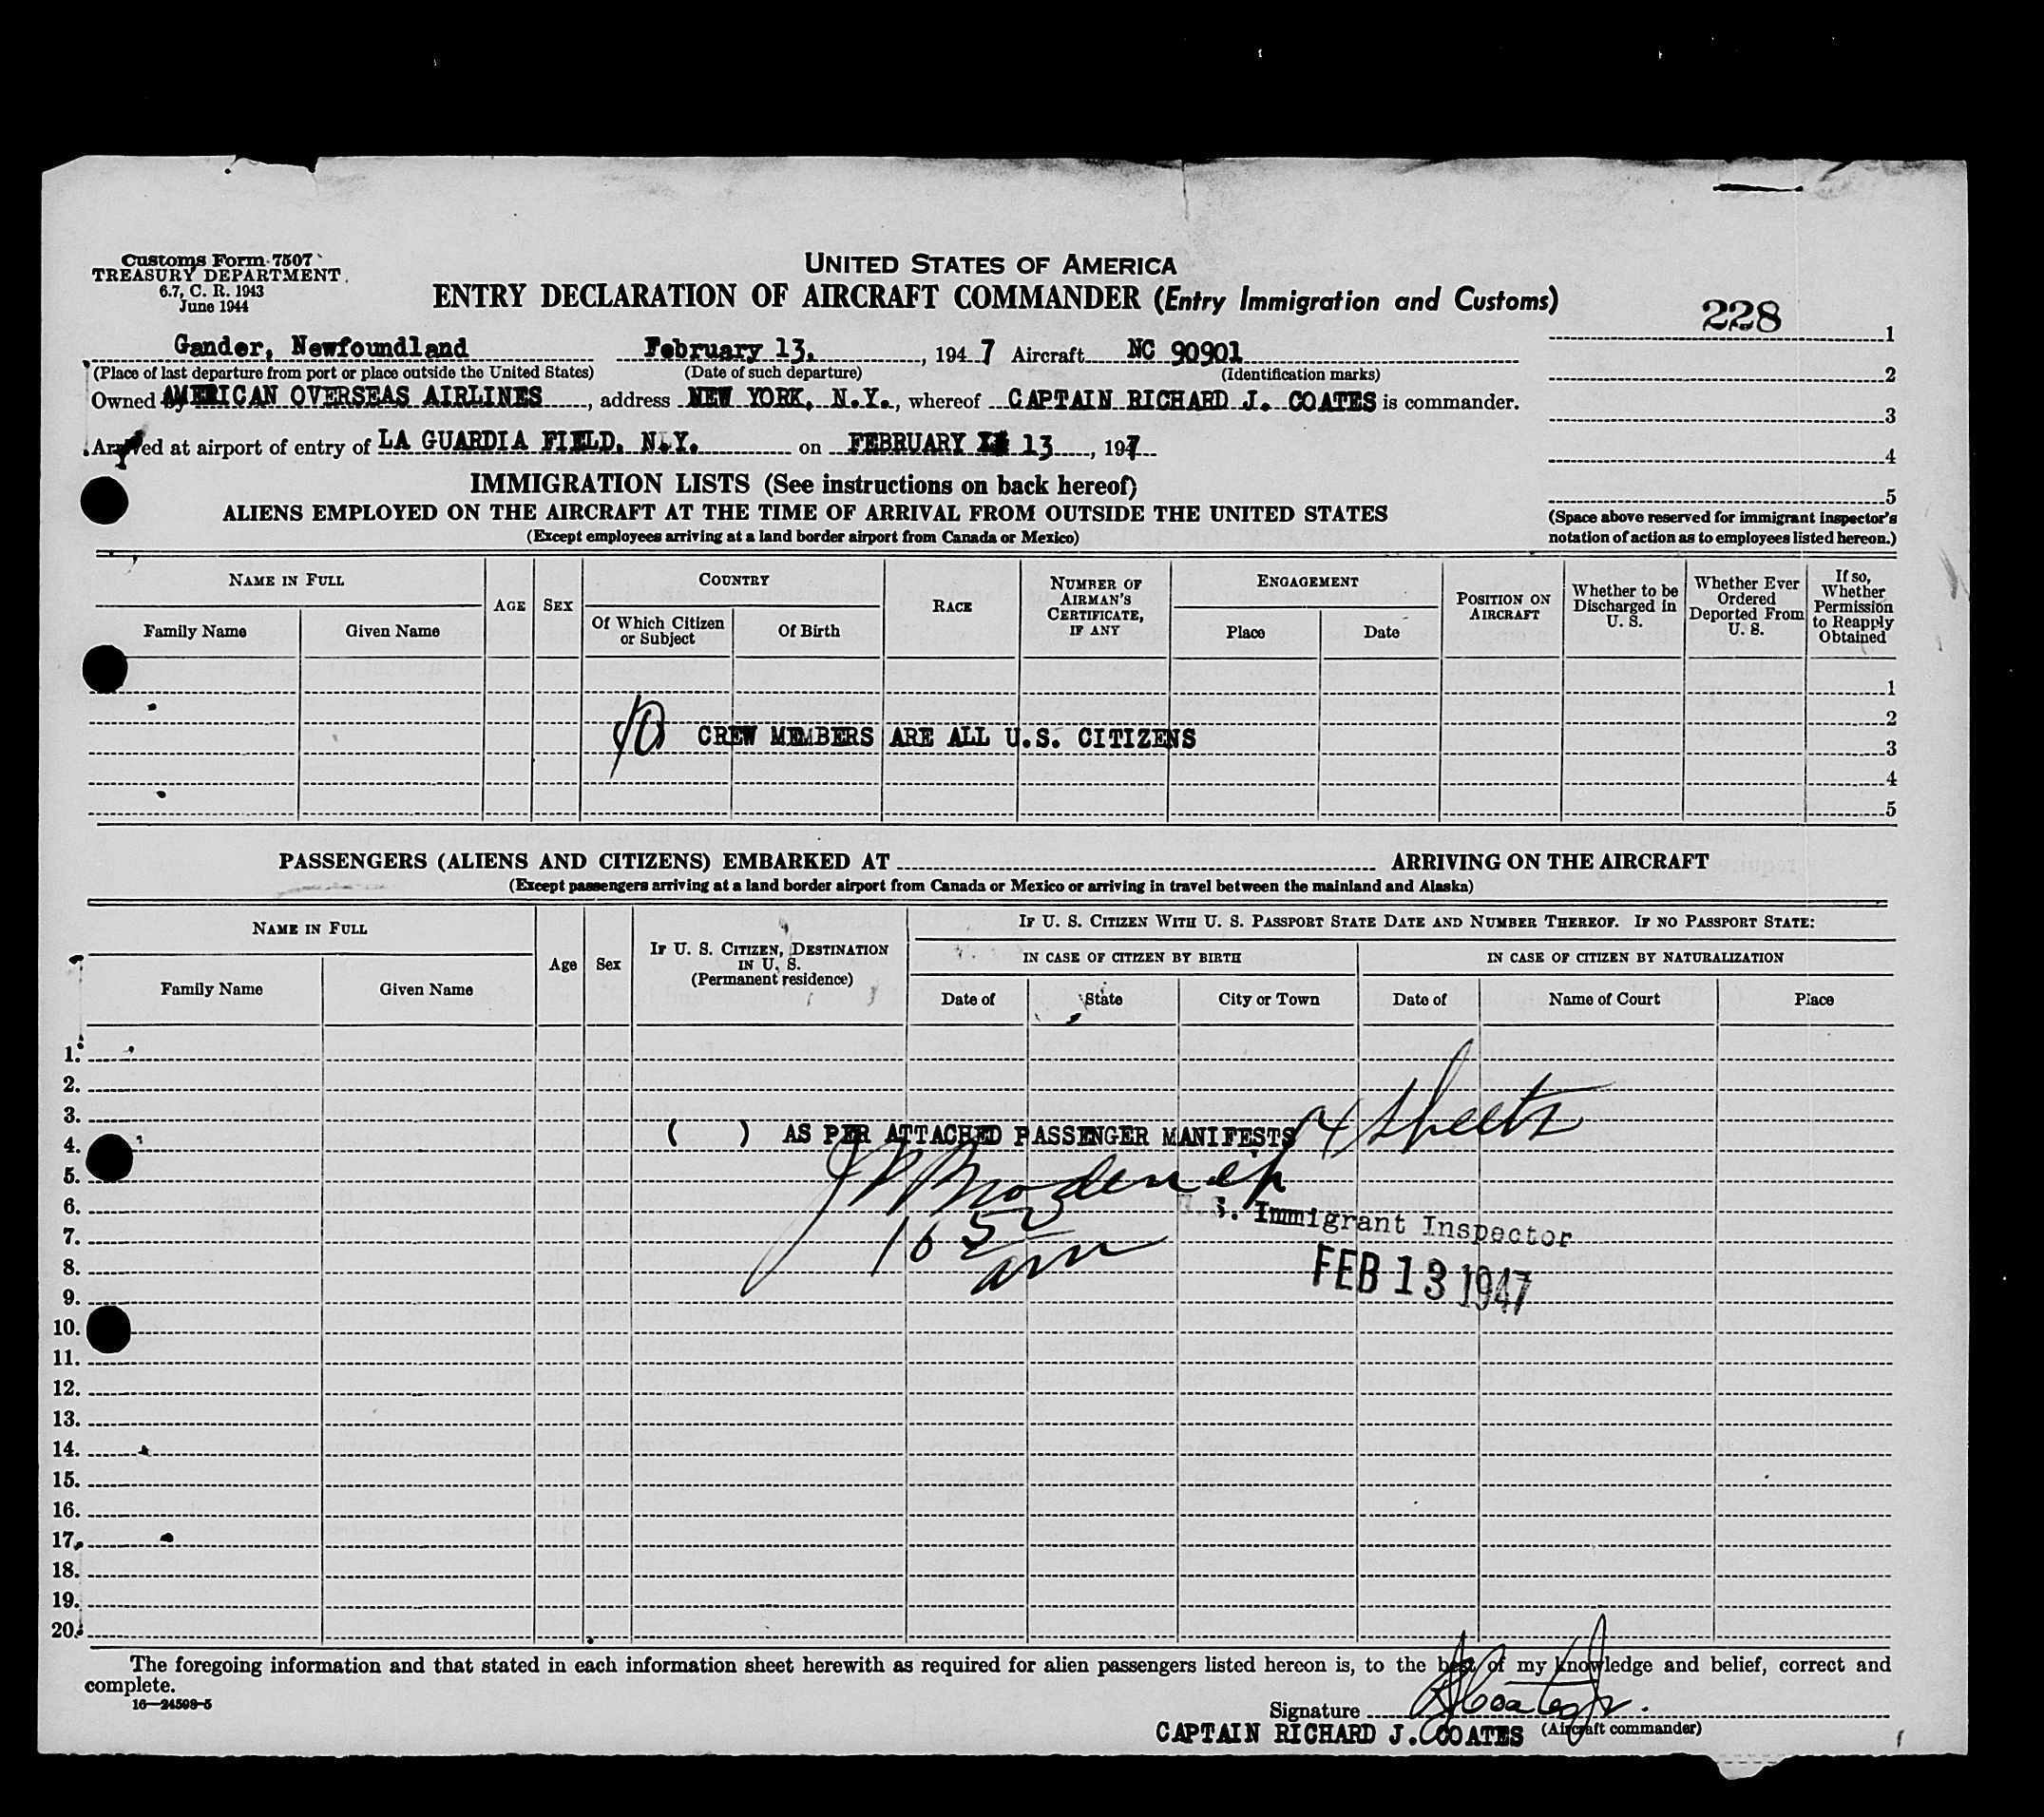 Customs Form 7507
TREASURY DEPARTMENT
6.7, C. R. 1943
June 1944
UNITED STATES OF AMERICA
ENTRY DECLARATION OF AIRCRAFT COMMANDER (Entry Immigration and Customs)
228
Gander, Newfoundland February 13, 1947 Aircraft NC 90901
(Place of last departure from port or place outside the United States) (Date of such departure) (Identification marks)
Owned by AMERICAN OVERSEAS AIRLINES, address NEW YORK, N.Y., whereof CAPTAIN RICHARD J. COATES is commander.
Arrived at airport of entry of LA GUARDIA FIELD, N.Y. on FEBRUARY 13, 1947
1
2
3
4
5
(Space above reserved for immigrant inspector's
notation of action as to employees listed hereon.)
IMMIGRATION LISTS (See instructions on back hereof)
ALIENS EMPLOYED ON THE AIRCRAFT AT THE TIME OF ARRIVAL FROM OUTSIDE THE UNITED STATES
(Except employees arriving at a land border airport from Canada or Mexico)
NAME IN FULL
Family Name
Given Name
AGE
SEX
COUNTRY
Of Which Citizen
or Subject
Of Birth
RACE
NUMBER OF
AIRMAN'S
CERTIFICATE,
IF ANY
ENGAGEMENT
Place
Date
POSITION ON
AIRCRAFT
Whether to be
Discharged in
U. S.
Whether Ever
Ordered
Deported From
U. S.
If so,
Whether
Permission
to Reapply
Obtained
1
2
10 CREW MEMBERS ARE ALL U.S. CITIZENS
3
4
5
PASSENGERS (ALIENS AND CITIZENS) EMBARKED AT ARRIVING ON THE AIRCRAFT
(Except passengers arriving at a land border airport from Canada or Mexico or arriving in travel between the mainland and Alaska)
NAME IN FULL
Family Name
Given Name
Age
Sex
IF U. S. CITIZEN, DESTINATION
IN U. S.
(Permanent residence)
IF U. S. CITIZEN WITH U. S. PASSPORT STATE DATE AND NUMBER THEREOF. IF NO PASSPORT STATE:
IN CASE OF CITIZEN BY BIRTH
Date of
State
City or Town
IN CASE OF CITIZEN BY NATURALIZATION
Date of
Name of Court
Place
1.
2.
3.
( ) AS PER ATTACHED PASSENGER MANIFESTS 4 sheets
4.
5.
6.
U.S. Immigrant Inspector
7.
1652
8.
arr
FEB 13 1947
9.
10.
11.
12.
13.
14.
15.
16.
17.
18.
19.
20.
The foregoing information and that stated in each information sheet herewith as required for alien passengers listed hereon is, to the best of my knowledge and belief, correct and
complete.
16—24598-5
Signature R J Coates Jr.
CAPTAIN RICHARD J. COATES (Aircraft commander)